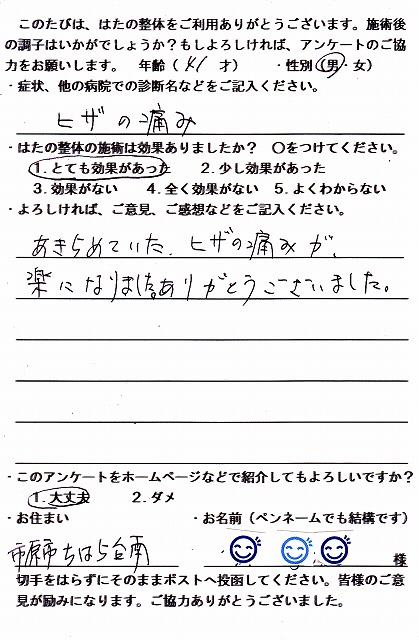 このたびは、はたの整体をご利用ありがとうございます。施術後
の調子はいかがでしょうか？もしよろしければ、アンケートのご協
力をお願いします。 年齢（ 41 才） ・性別（男・女）
・症状、他の病院での診断名などをご記入ください。
ヒザの痛み
・はたの整体の施術は効果ありましたか？ ○をつけてください。
1. とても効果があった 2. 少し効果があった
3. 効果がない 4. 全く効果がない 5. よくわからない
・よろしければ、ご意見、ご感想などをご記入ください。
あきらめていた、ヒザの痛みが、
楽になりました。ありがとうございました。
・このアンケートをホームページなどで紹介してもよろしいですか？
1. 大丈夫 2. ダメ
・お住まい ・お名前（ペンネームでも結構です）
市原市ちはら台南 様
切手をはらずにそのままポストへ投函してください。皆様のご意
見が励みになります。ご協力ありがとうございました。